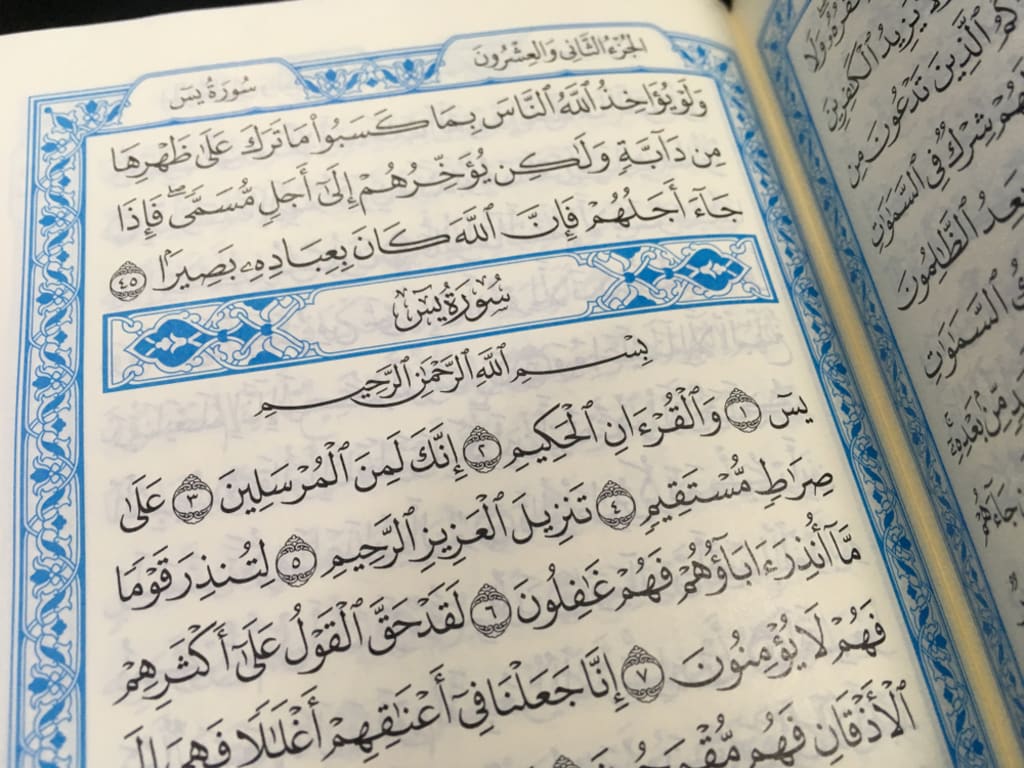 الجزء الثاني والعشرون
سورة يس
وَلَوْ يُؤَاخِذُ ٱللَّهُ ٱلنَّاسَ بِمَا كَسَبُوا۟ مَا تَرَكَ عَلَىٰ ظَهْرِهَا
مِن دَآبَّةٍ وَلَٰكِن يُؤَخِّرُهُمْ إِلَىٰٓ أَجَلٍ مُّسَمًّى ۖ فَإِذَا
جَآءَ أَجَلُهُمْ فَإِنَّ ٱللَّهَ كَانَ بِعِبَادِهِۦ بَصِيرًۢا ٤٥
سُورَةُ يسٓ
بِسْمِ ٱللَّهِ ٱلرَّحْمَٰنِ ٱلرَّحِيمِ
يسٓ ١ وَٱلْقُرْءَانِ ٱلْحَكِيمِ ٢ إِنَّكَ لَمِنَ ٱلْمُرْسَلِينَ ٣ عَلَىٰ
صِرَٰطٍ مُّسْتَقِيمٍ ٤ تَنزِيلَ ٱلْعَزِيزِ ٱلرَّحِيمِ ٥ لِتُنذِرَ قَوْمًا
مَّآ أُنذِرَ ءَابَآؤُهُمْ فَهُمْ غَٰفِلُونَ ٦ لَقَدْ حَقَّ ٱلْقَوْلُ عَلَىٰٓ أَكْثَرِهِمْ
فَهُمْ لَا يُؤْمِنُونَ ٧ إِنَّا جَعَلْنَا فِىٓ أَعْنَٰقِهِمْ أَغْلَٰلًا فَهِىَ إِلَى
ٱلْأَذْقَانِ فَهُم مُّقْمَحُونَ
يَزِيدُ ٱلْكَٰفِرِينَ
ٱلَّذِينَ تَدْعُونَ مِن
شِرْكٌ فِى ٱلسَّمَٰوَٰتِ
ٱلظَّٰلِمُونَ
ٱلسَّمَٰوَٰتِ
مِّنۢ بَعْدِهِۦٓ
جَآءَهُمْ